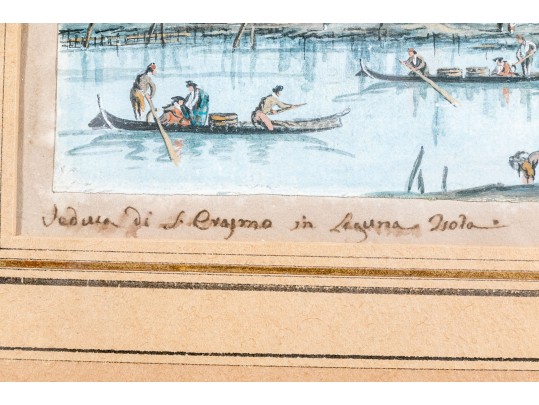 Veduta di S. Erasmo in Laguna Isola.